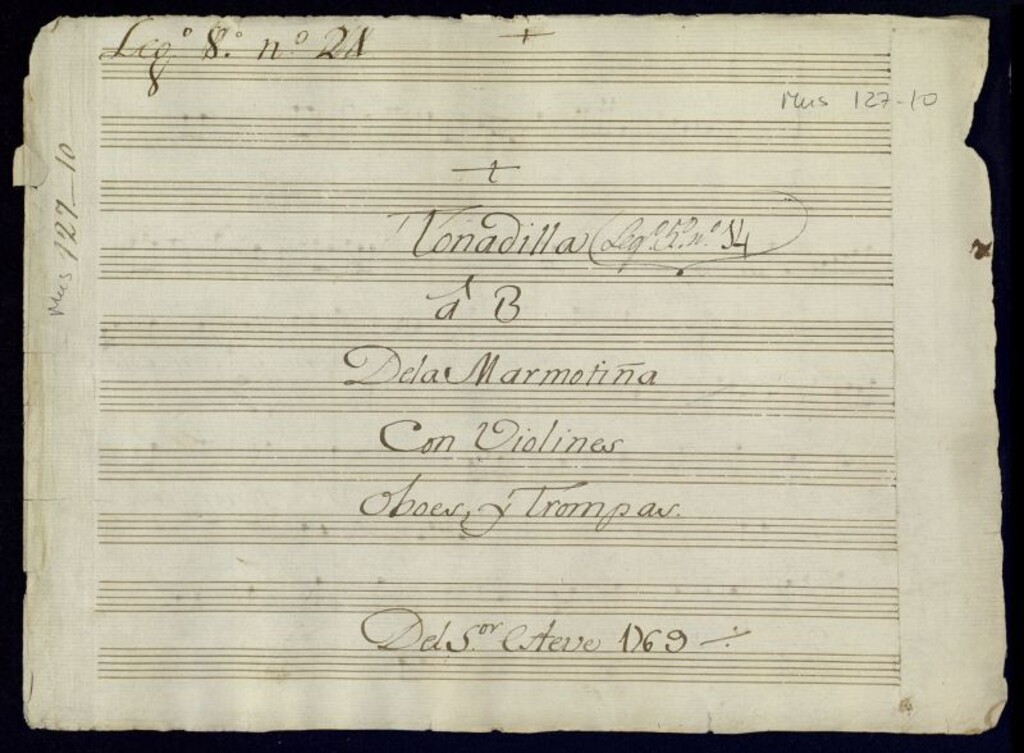 Leg.º 8.º nº 21
Mus 127-10
Mus 127-10
Tonadilla (Leg.º 5.º n.º 14
a 3
Dela Marmotiña
Con Violines
Oboes, y Trompas.
Del S.or Esteve 1769